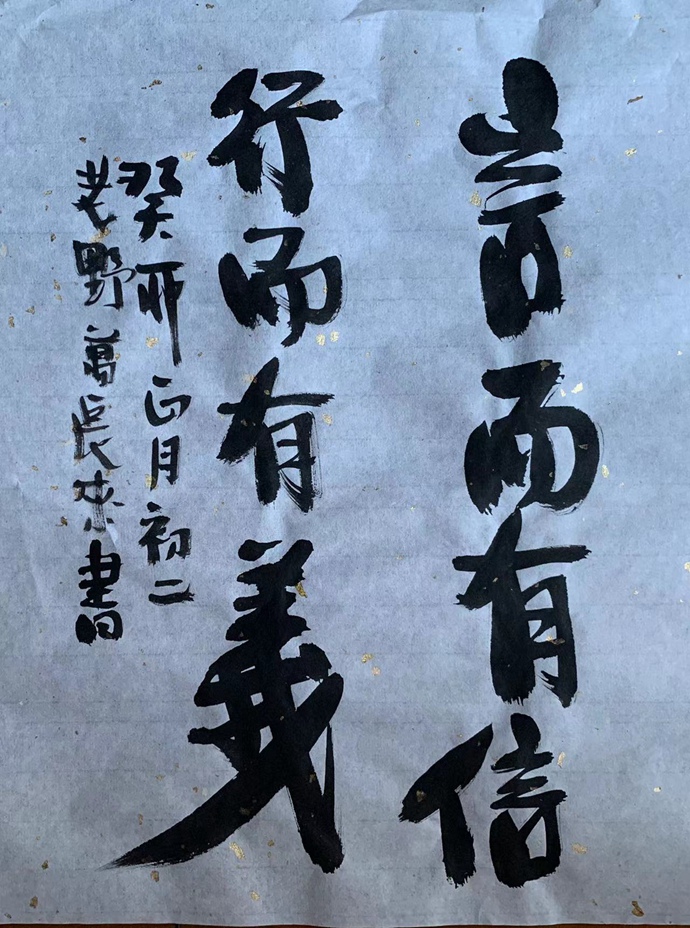 言而有信
行而有義
癸卯正月初二
老野萬長來書